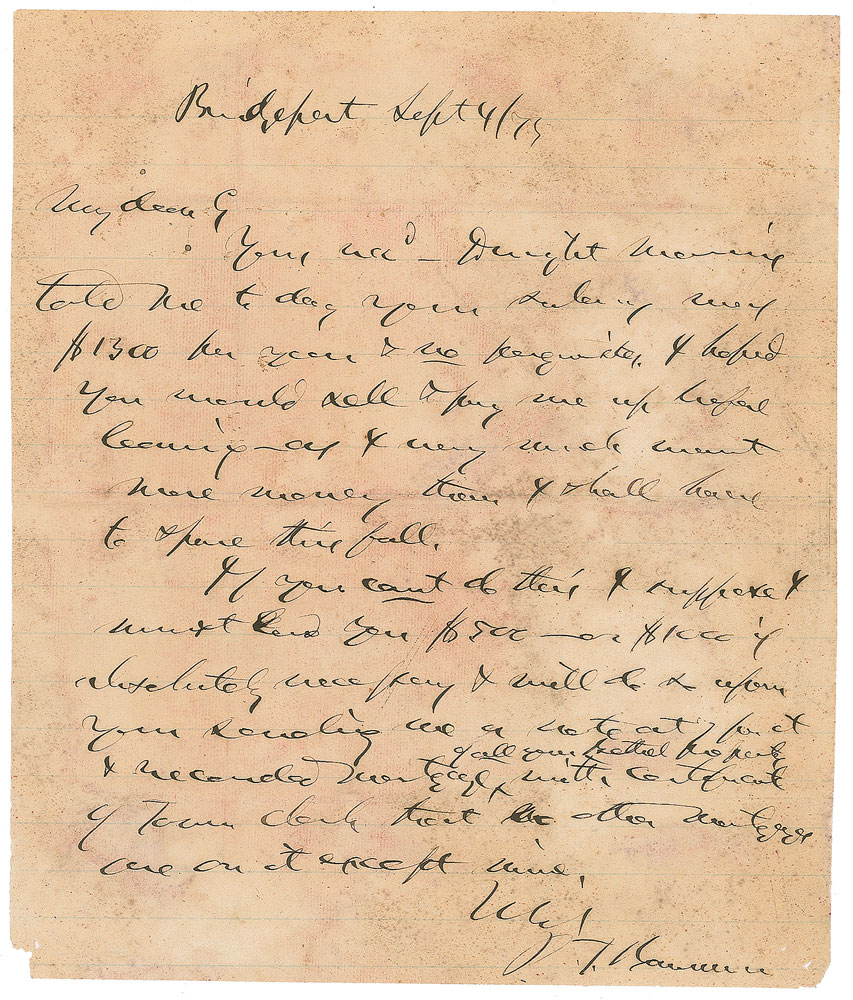 Bridgeport Sept 4/75
My dear G
Yours recd – Dwight Morris
told me to day your salary was
$1300 per year & no perquisites. I hoped
you would sell & pay me up before
leaving – as I very much want
more money than I shall have
to spare this fall.
If you cant do this I suppose I
must lend you $500 – or $1000 if
absolutely necessary & will do so upon
your sending me a note at 7 per ct
of all your Bethel property
& recorded mortgage, with certificate
of Town clerk that no other mortgages
are on it except mine.
P. T. Barnum